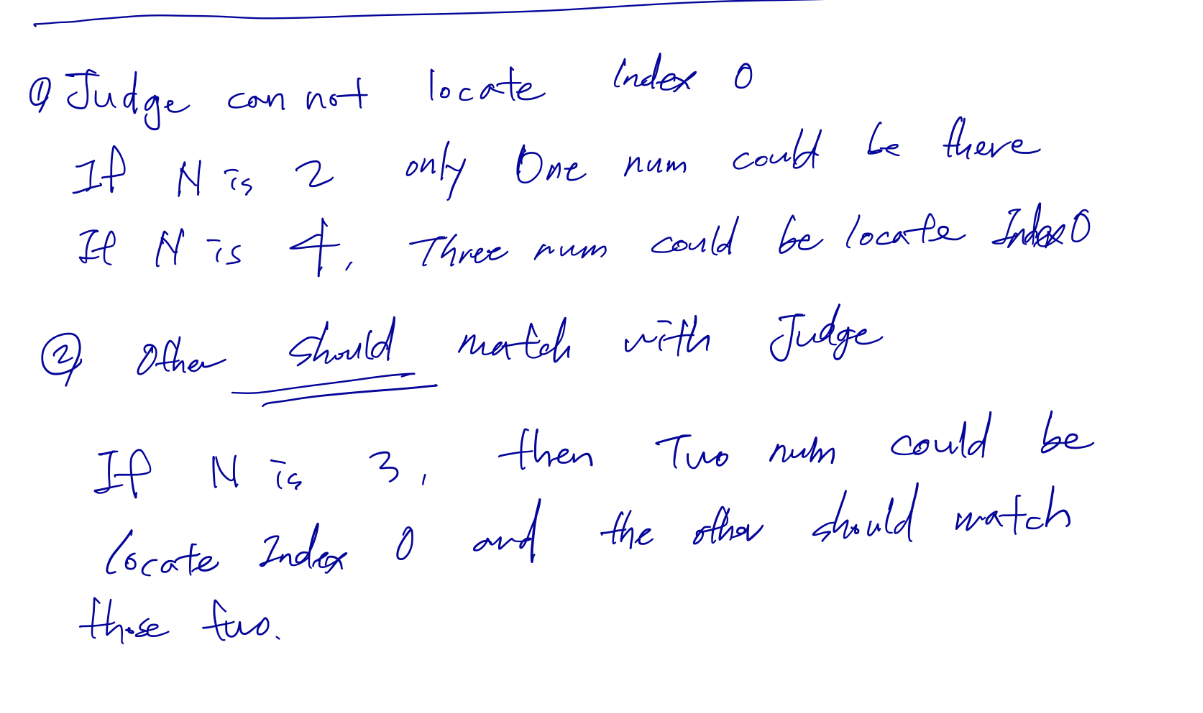 ① Judge can not locate Index 0
If N is 2 only One num could be there
If N is 4, Three num could be locate Index 0
② Other should match with Judge
If N is 3, then Two num could be
locate Index 0 and the other should match
those two.